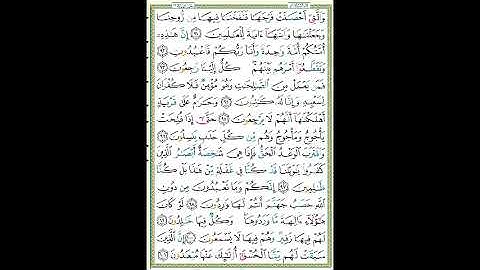 وَٱلَّتِىٓ أَحْصَنَتْ فَرْجَهَا فَنَفَخْنَا فِيهَا مِن رُّوحِنَا
وَجَعَلْنَٰهَا وَٱبْنَهَآ ءَايَةً لِّلْعَٰلَمِينَ ﴿٩١﴾ إِنَّ هَٰذِهِۦٓ
أُمَّتُكُمْ أُمَّةً وَٰحِدَةً وَأَنَا۠ رَبُّكُمْ فَٱعْبُدُونِ ﴿٩٢﴾
وَتَقَطَّعُوٓا۟ أَمْرَهُم بَيْنَهُمْ كُلٌّ إِلَيْنَا رَٰجِعُونَ ﴿٩٣﴾
فَمَن يَعْمَلْ مِنَ ٱلصَّٰلِحَٰتِ وَهُوَ مُؤْمِنٌ فَلَا كُفْرَانَ
لِسَعْيِهِۦ وَإِنَّا لَهُۥ كَٰتِبُونَ ﴿٩٤﴾ وَحَرَٰمٌ عَلَىٰ قَرْيَةٍ
أَهْلَكْنَٰهَآ أَنَّهُمْ لَا يَرْجِعُونَ ﴿٩٥﴾ حَتَّىٰٓ إِذَا فُتِحَتْ
يَأْجُوجُ وَمَأْجُوجُ وَهُم مِّن كُلِّ حَدَبٍ يَنسِلُونَ ﴿٩٦﴾
وَٱقْتَرَبَ ٱلْوَعْدُ ٱلْحَقُّ فَإِذَا هِىَ شَٰخِصَةٌ أَبْصَٰرُ ٱلَّذِينَ
كَفَرُوا۟ يَٰوَيْلَنَا قَدْ كُنَّا فِى غَفْلَةٍ مِّنْ هَٰذَا بَلْ كُنَّا
ظَٰلِمِينَ ﴿٩٧﴾ إِنَّكُمْ وَمَا تَعْبُدُونَ مِن دُونِ
ٱللَّهِ حَصَبُ جَهَنَّمَ أَنتُمْ لَهَا وَٰرِدُونَ ﴿٩٨﴾ لَوْ كَانَ
هَٰٓؤُلَآءِ ءَالِهَةً مَّا وَرَدُوهَا وَكُلٌّ فِيهَا خَٰلِدُونَ ﴿٩٩﴾
لَهُمْ فِيهَا زَفِيرٌ وَهُمْ فِيهَا لَا يَسْمَعُونَ ﴿١٠٠﴾ إِنَّ ٱلَّذِينَ
سَبَقَتْ لَهُم مِّنَّا ٱلْحُسْنَىٰٓ أُو۟لَٰٓئِكَ عَنْهَا مُبْعَدُونَ ﴿١٠١﴾